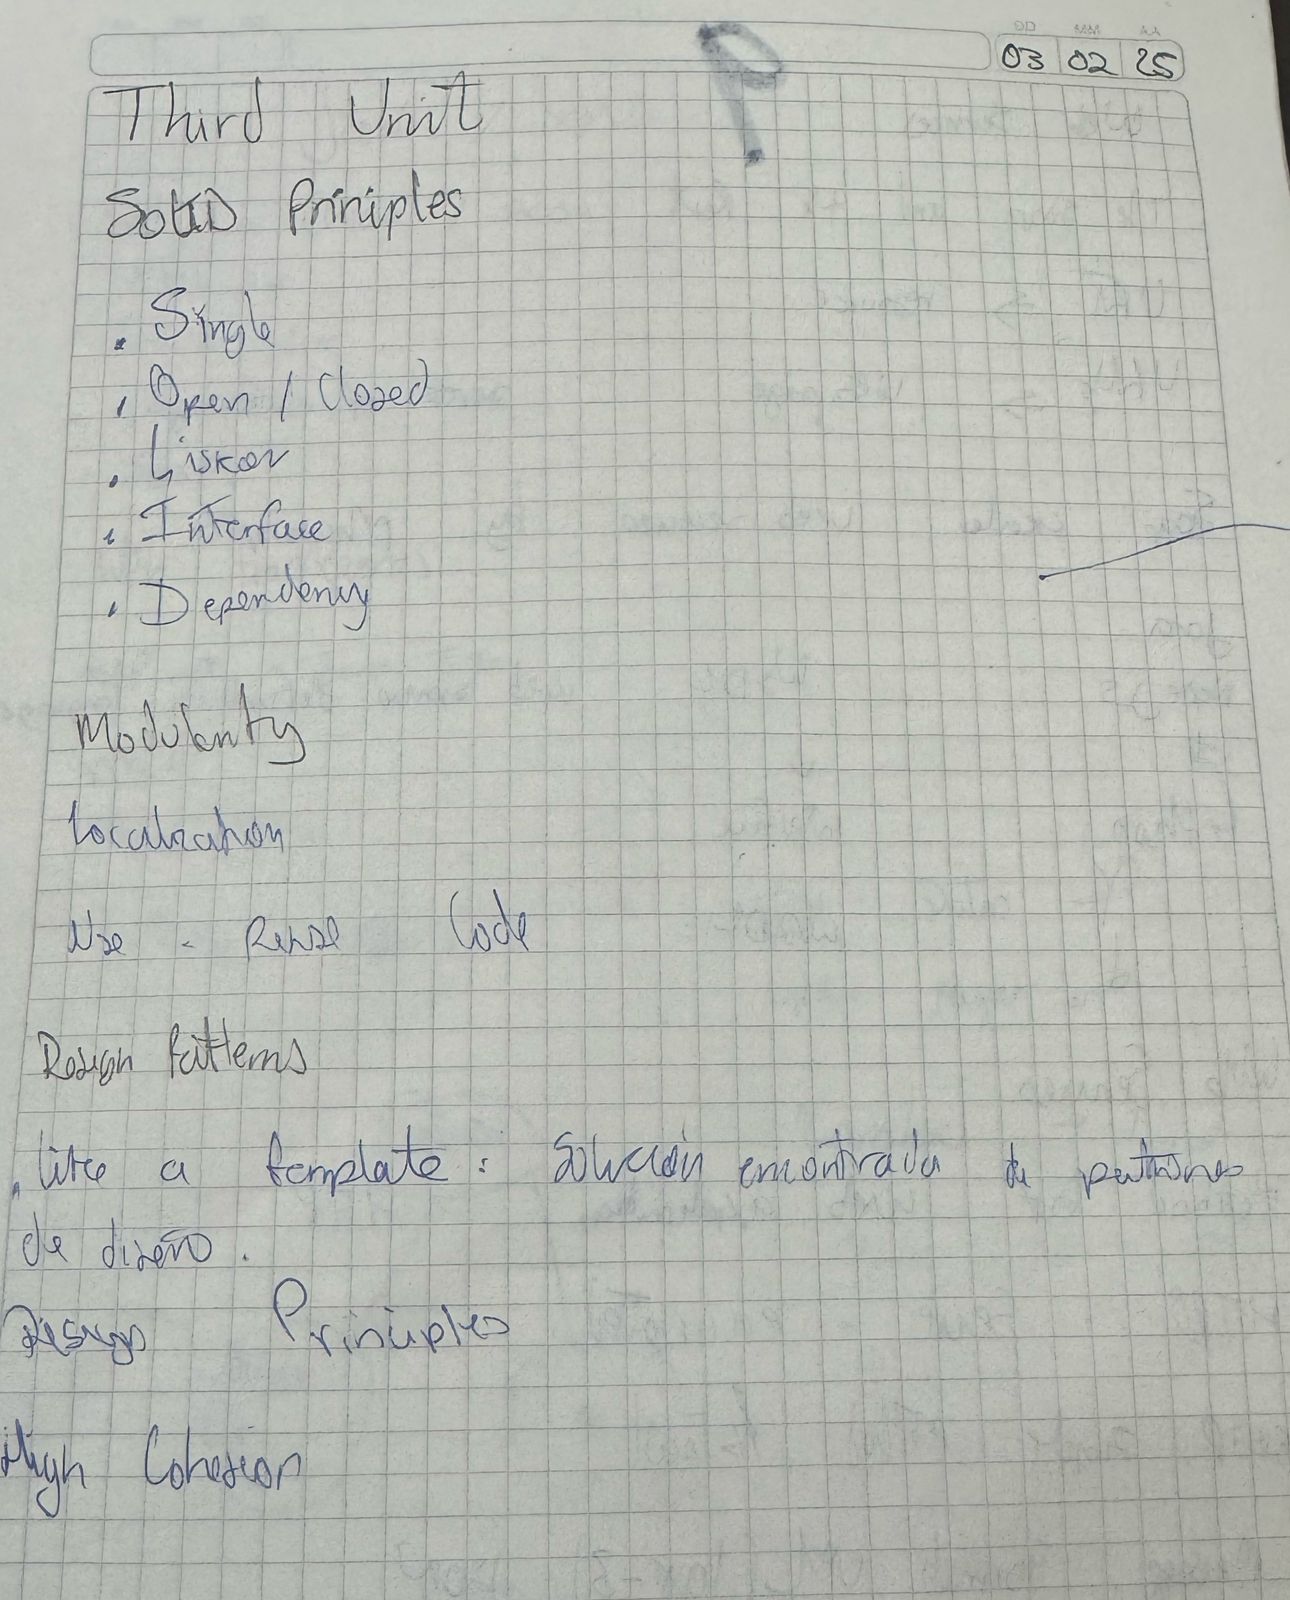 03 02 25
Third Unit
SOLID Priniples
. Single
. Open / Closed
. Liskov
. Interface
. Dependency
Modularity
Localization
Use - Reuse Code
Design Patterns
. like a template : Solución encontrada de patrones
de diseño .
Design Principles
High Cohesion